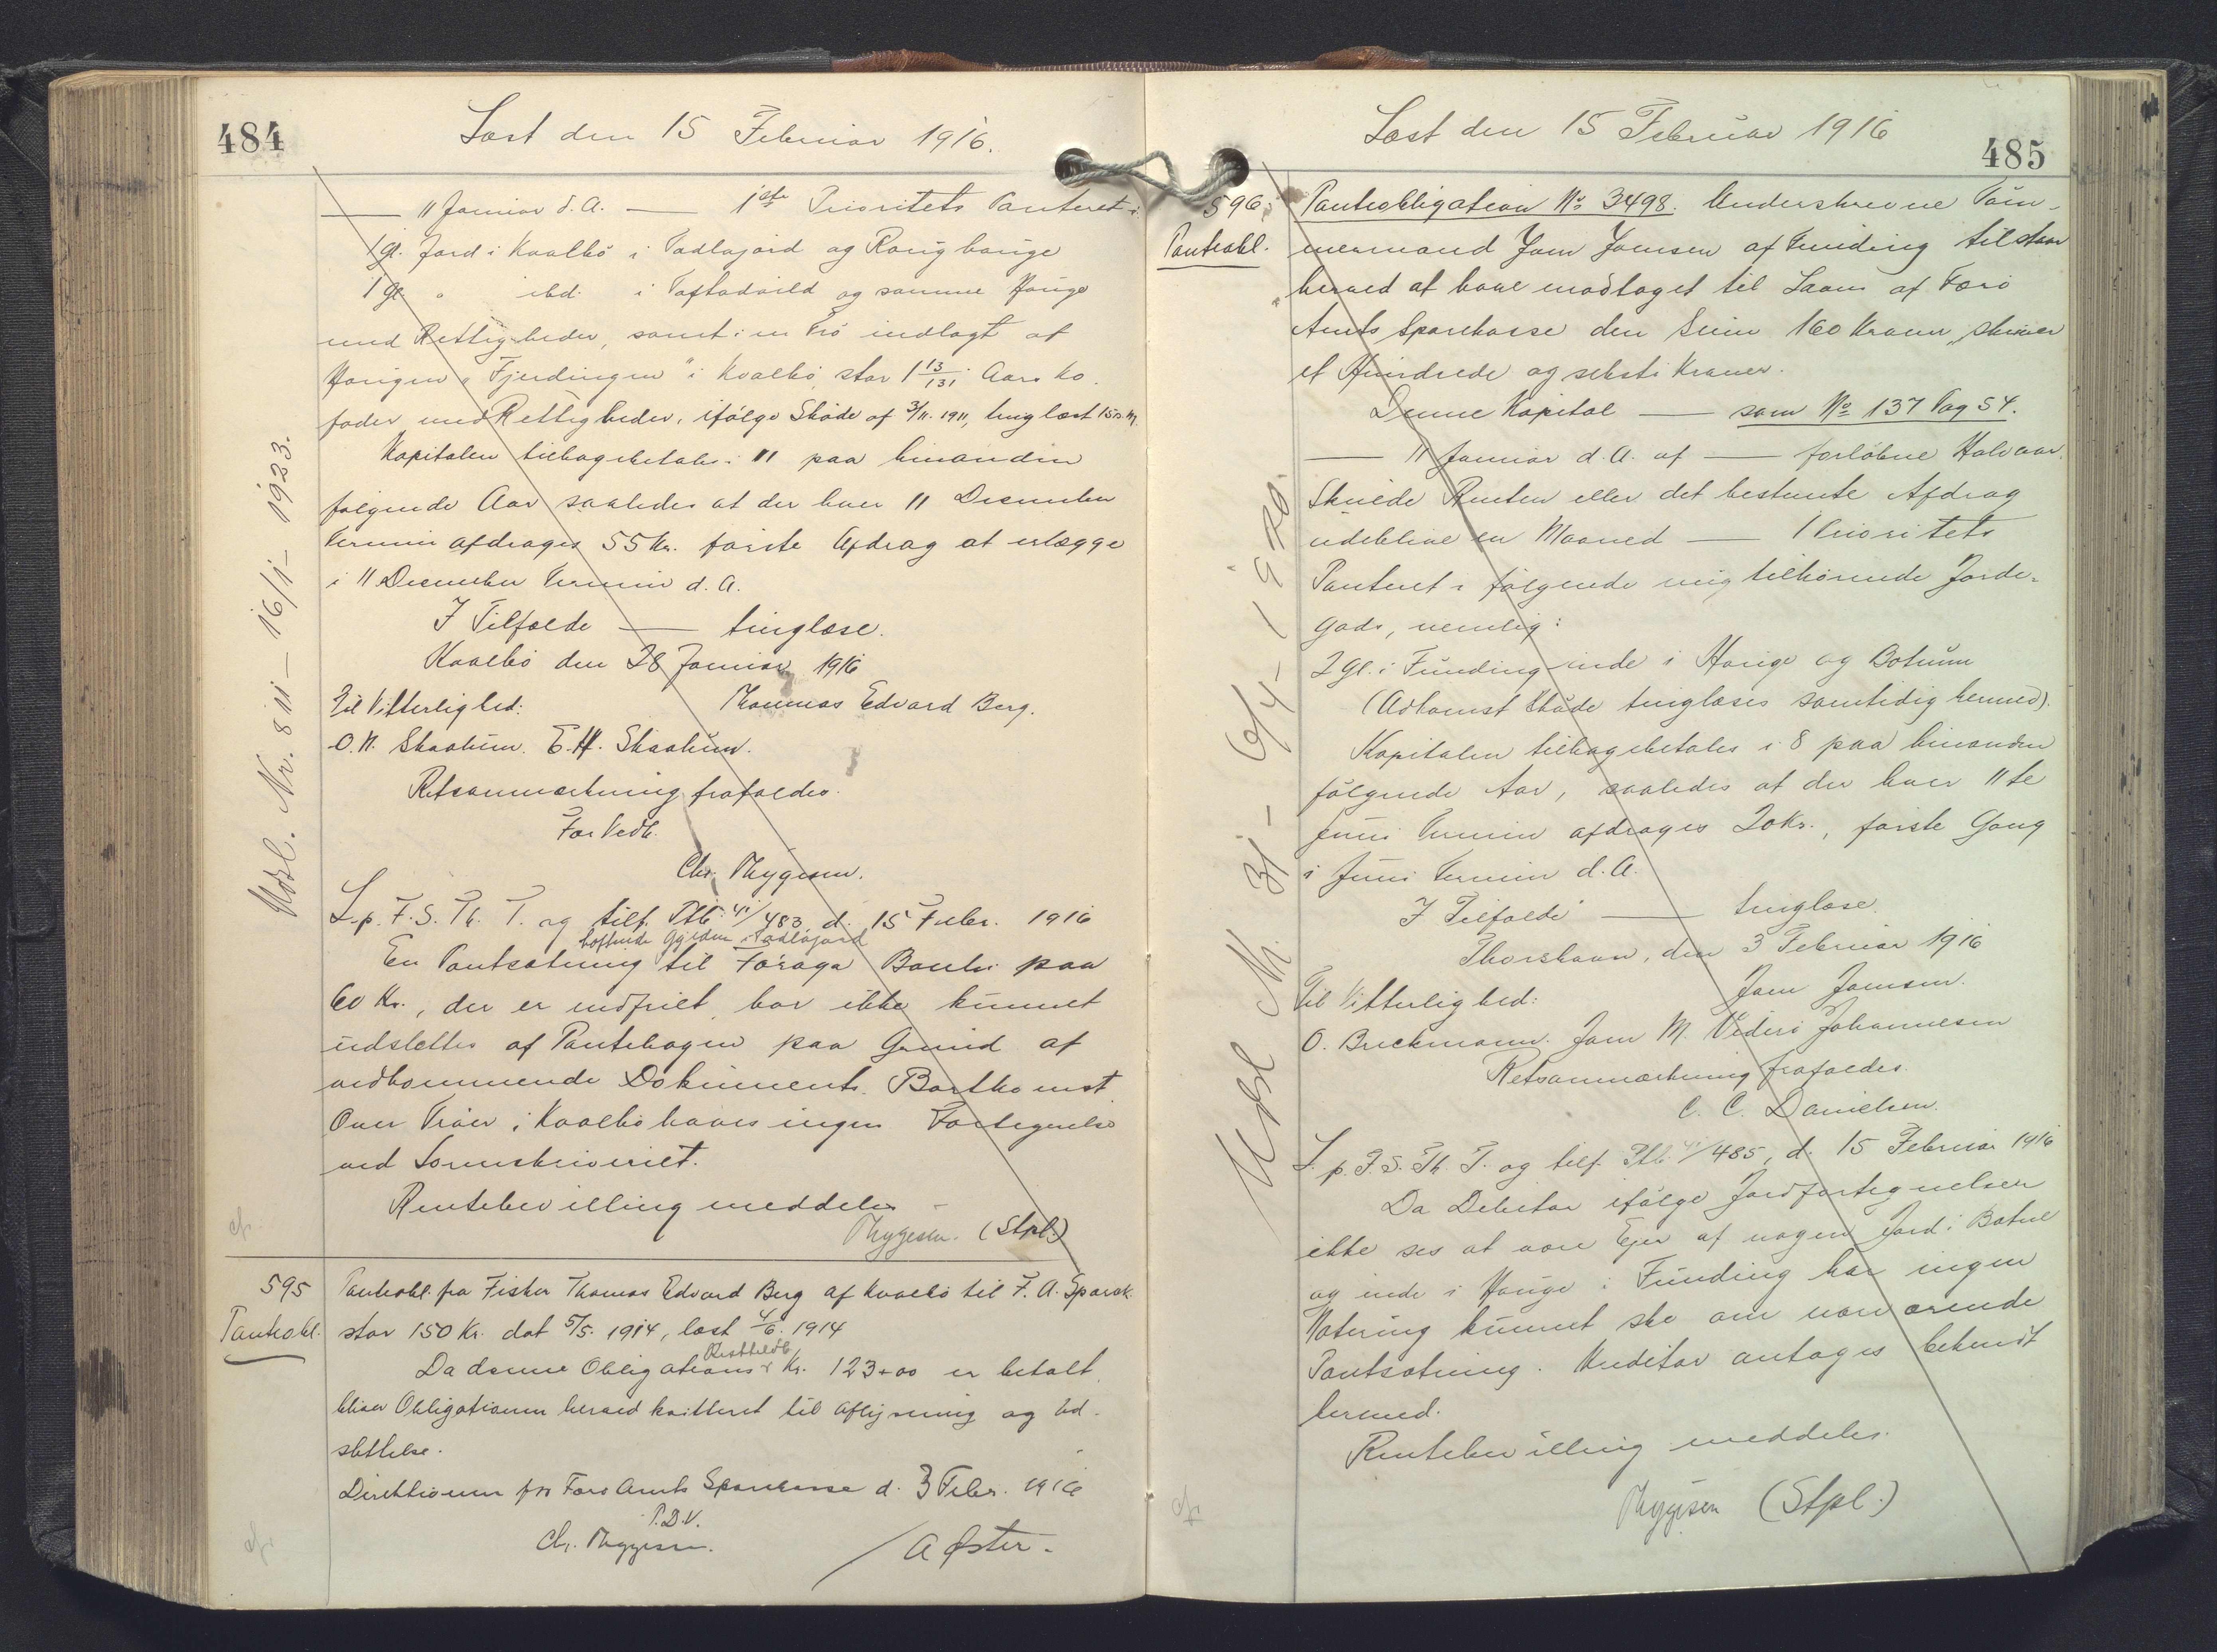 484
Læst den 15 Februar 1916.
Udsl. Nr. 811 — 16/1- 1923.
— 11 Januar d.A. — 1ste Prioritets Panteret i
1 gl. Jord i Kvalbø i og
1 gl " ibd. i og samme Hauge
med Rettigheder, samt i en Trö indlagt af
Haugen "Fjerdingen" i Kvalbø, stor 1 13/131 Aars Ko-
foder med Rettigheder, ifølge Skøde af 3/11. 1911, tinglæst
Kapitalen tilbagebetales i 11 paa hinanden
følgende Aar saaledes at der hver 11 December
Termin afdrages 55 Kr. første Afdrag at erlægge
i 11 December Termin d.A.
I Tilfælde — tinglæse.
Kvalbø den 28 Januar 1916
Til Vitterlighed: Thommas Edvard Berg.
O.N. Skaalum. E.H. Skaalum.
Retsanmærkning frafaldes.
For Vedk.
Chr. Thygesen.
L. p. F. S. Th. T. og tilf. Ptb. 4i/483 d. 15 Febr. 1916
hæftende Gylden i
En Pantsætning til Föroya Banki paa
60 Kr., der er indfriet, har ikke kunnet
udslettes af Pantebogen paa Grund af
vedkommende Dokuments Bortkomst.
Over Tröer i Kvalbø haves ingen Fortegnelse
ved Sorenskriveriet.
Rentebevilling meddeles
Thygesen. (Stpl.)
595
Panteobl.
Panteobl. fra Fisker Thomas Edvard Berg af Kvalbø til F. A. Spark.
stor 150 Kr. dat 5/5. 1914, læst 4/6. 1914
Restbeløb
Da denne Obligations Kr. 123+00 er betalt,
bliver Obligationen herved kvitteret til Aflysning og Ud-
slettelse.
Direktionen for Færø Amts Sparekasse d. 3 Febr. 1916
P.D.V.
Ch. Thygesen. / A Øster.
485
Læst den 15 Februar 1916
596.
Panteobl.
Udsl Nr. 31 - 6/4- 1920.
Panteobligation No 3498. Underskrevne Tøm-
mermand Joen Joensen af Funding tilstaar
herved at have modtaget til Laans af Færø
Amts Sparekasse den Sum 160 Kroner, skriver
et Hundrede og seksti Kroner.
Denne Kapital — som No 137 Pag 54.
— 11 Januar d.A. af — forløbne Halvaar.
Skulde Renten eller det bestemte Afdrag
udeblive en Maaned — 1 Prioritets
Panteret i følgende mig tilhørende Jorde-
gods, nemlig:
2 Gl. i Funding inde i Hauge og Botnum
(Adkomst Skøde tinglæses samtidig hermed).
Kapitalen tilbagebetales i 8 paa hinanden
følgende Aar, saaledes at der hver 11te
Juni Termin afdrages 20 Kr., første Gang
i Juni Termin d.A.
I Tilfælde — tinglæse.
Thorshavn, den 3 Februar 1916
Til Vitterlighed: Joen Joensen.
O. Brekmann. Joen M. Viderø Johannesen
Retsanmærkning frafaldes.
C. C. Danielsen.
L. p. F. S. Th. T. og tilf. Ptb. 4i/485, d. 15 Februar 1916
Da Debitor ifølge Jordfortegnelsen
ikke ses at være Ejer af nogen Jord i Botni
og inde i Hauge i Funding har ingen
Notering kunnet ske om nærværende
Pantsætning. Kreditor antages bekendt
hermed.
Rentebevilling meddeles.
Thygesen (Stpl.)